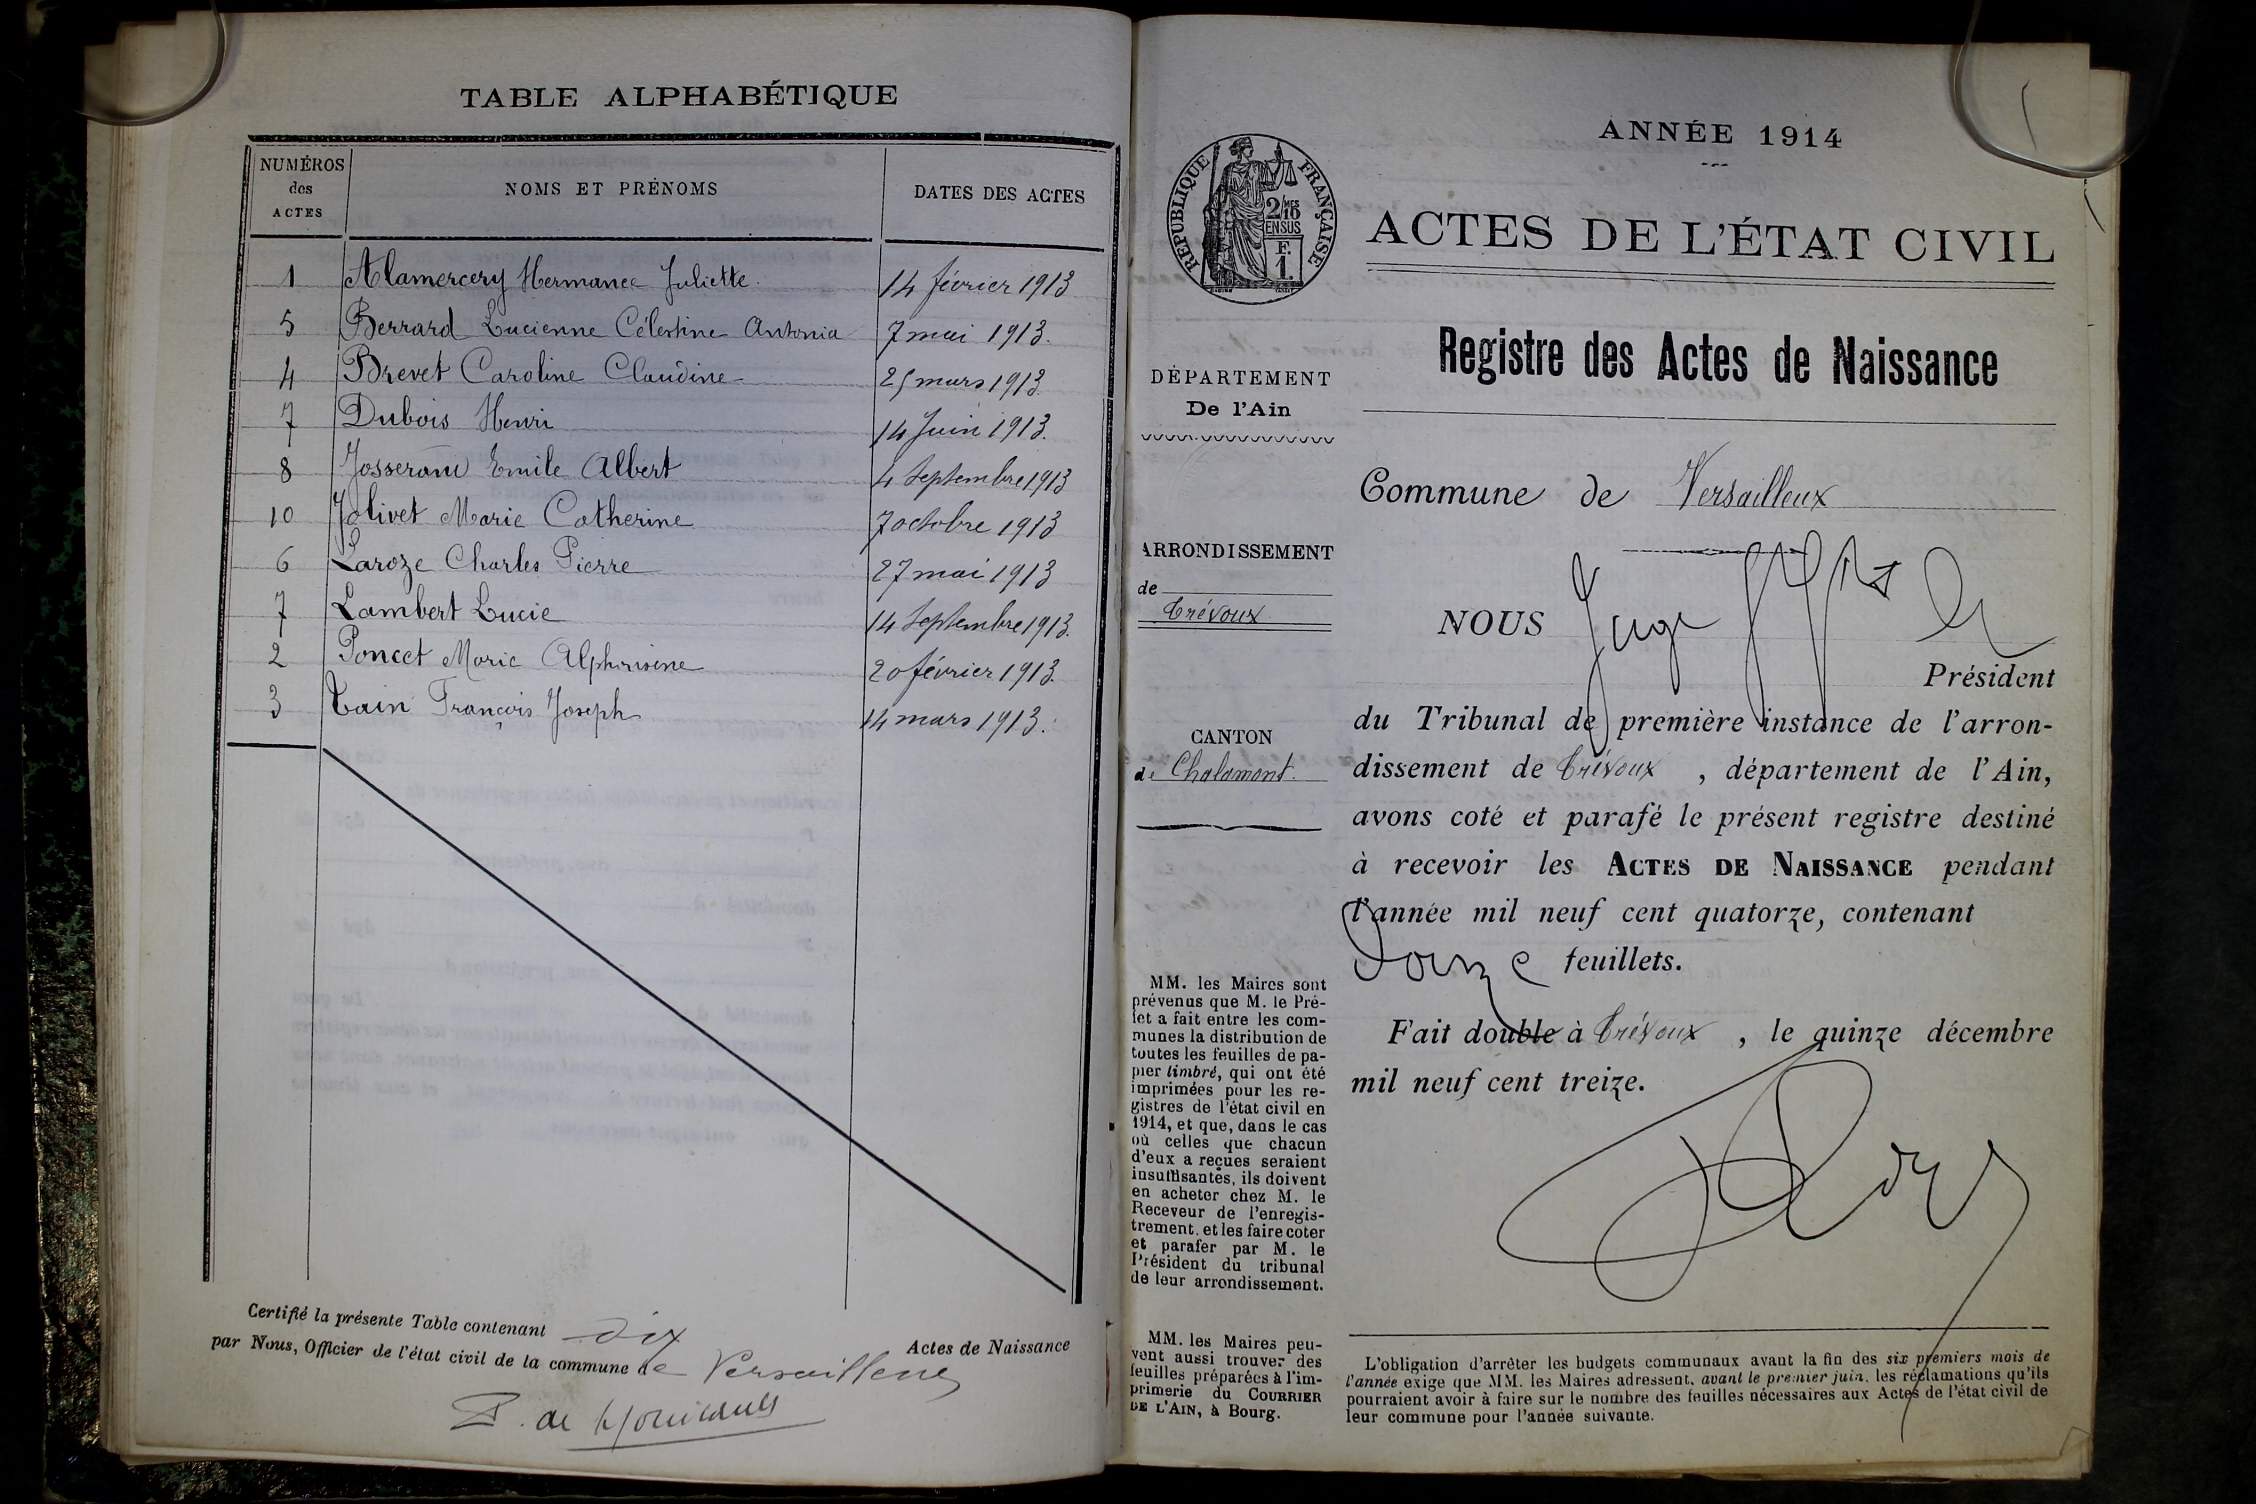 TABLE ALPHABÉTIQUE
NUMÉROS des ACTES
NOMS ET PRÉNOMS
DATES DES ACTES
1 Alamercery Hermance Juliette 14 février 1913
5 Berrard Lucienne Célestine Antonia 7 mai 1913.
4 Brevet Caroline Claudine 25 mars 1913.
7 Dubois Henri 14 Juin 1913.
8 Josserand Emile Albert 4 Septembre 1913
10 Jolivet Marie Catherine 7 octobre 1913
6 Laroze Charles Pierre 27 mai 1913
7 Lambert Lucie 14 Septembre 1913.
2 Poncet Marie Alphonsine 20 février 1913.
3 Tain François Joseph 14 mars 1913.
Certifié la présente Table contenant dix Actes de Naissance
par Nous, Officier de l'état civil de la commune de Versailleux
P. de
ANNÉE 1914
RÉPUBLIQUE FRANÇAISE
2/10 MES
EN SUS
F.
1.
ACTES DE L'ÉTAT CIVIL
Registre des Actes de Naissance
DÉPARTEMENT
De l'Ain
Commune de Versailleux
ARRONDISSEMENT
de
Trévoux
NOUS Juge
Président
du Tribunal de première instance de l'arron-
dissement de Trévoux, département de l'Ain,
avons coté et parafé le présent registre destiné
à recevoir les ACTES DE NAISSANCE pendant
l'année mil neuf cent quatorze, contenant
douze feuillets.
Fait double à Trévoux, le quinze décembre
mil neuf cent treize.
CANTON
de Chalamont.
MM. les Maires sont
prévenus que M. le Pré-
fet a fait entre les com-
munes la distribution de
toutes les feuilles de pa-
pier timbré, qui ont été
imprimées pour les re-
gistres de l'état civil en
1914, et que, dans le cas
où celles que chacun
d'eux a reçues seraient
insuffisantes, ils doivent
en acheter chez M. le
Receveur de l'enregis-
trement, et les faire coter
et parafer par M. le
Président du tribunal
de leur arrondissement.
MM. les Maires peu-
vent aussi trouver des
feuilles préparées à l'im-
primerie du COURRIER
DE L'AIN, à Bourg.
L'obligation d'arrêter les budgets communaux avant la fin des six premiers mois de
l'année exige que MM. les Maires adressent, avant le premier juin, les réclamations qu'ils
pourraient avoir à faire sur le nombre des feuilles nécessaires aux Actes de l'état civil de
leur commune pour l'année suivante.